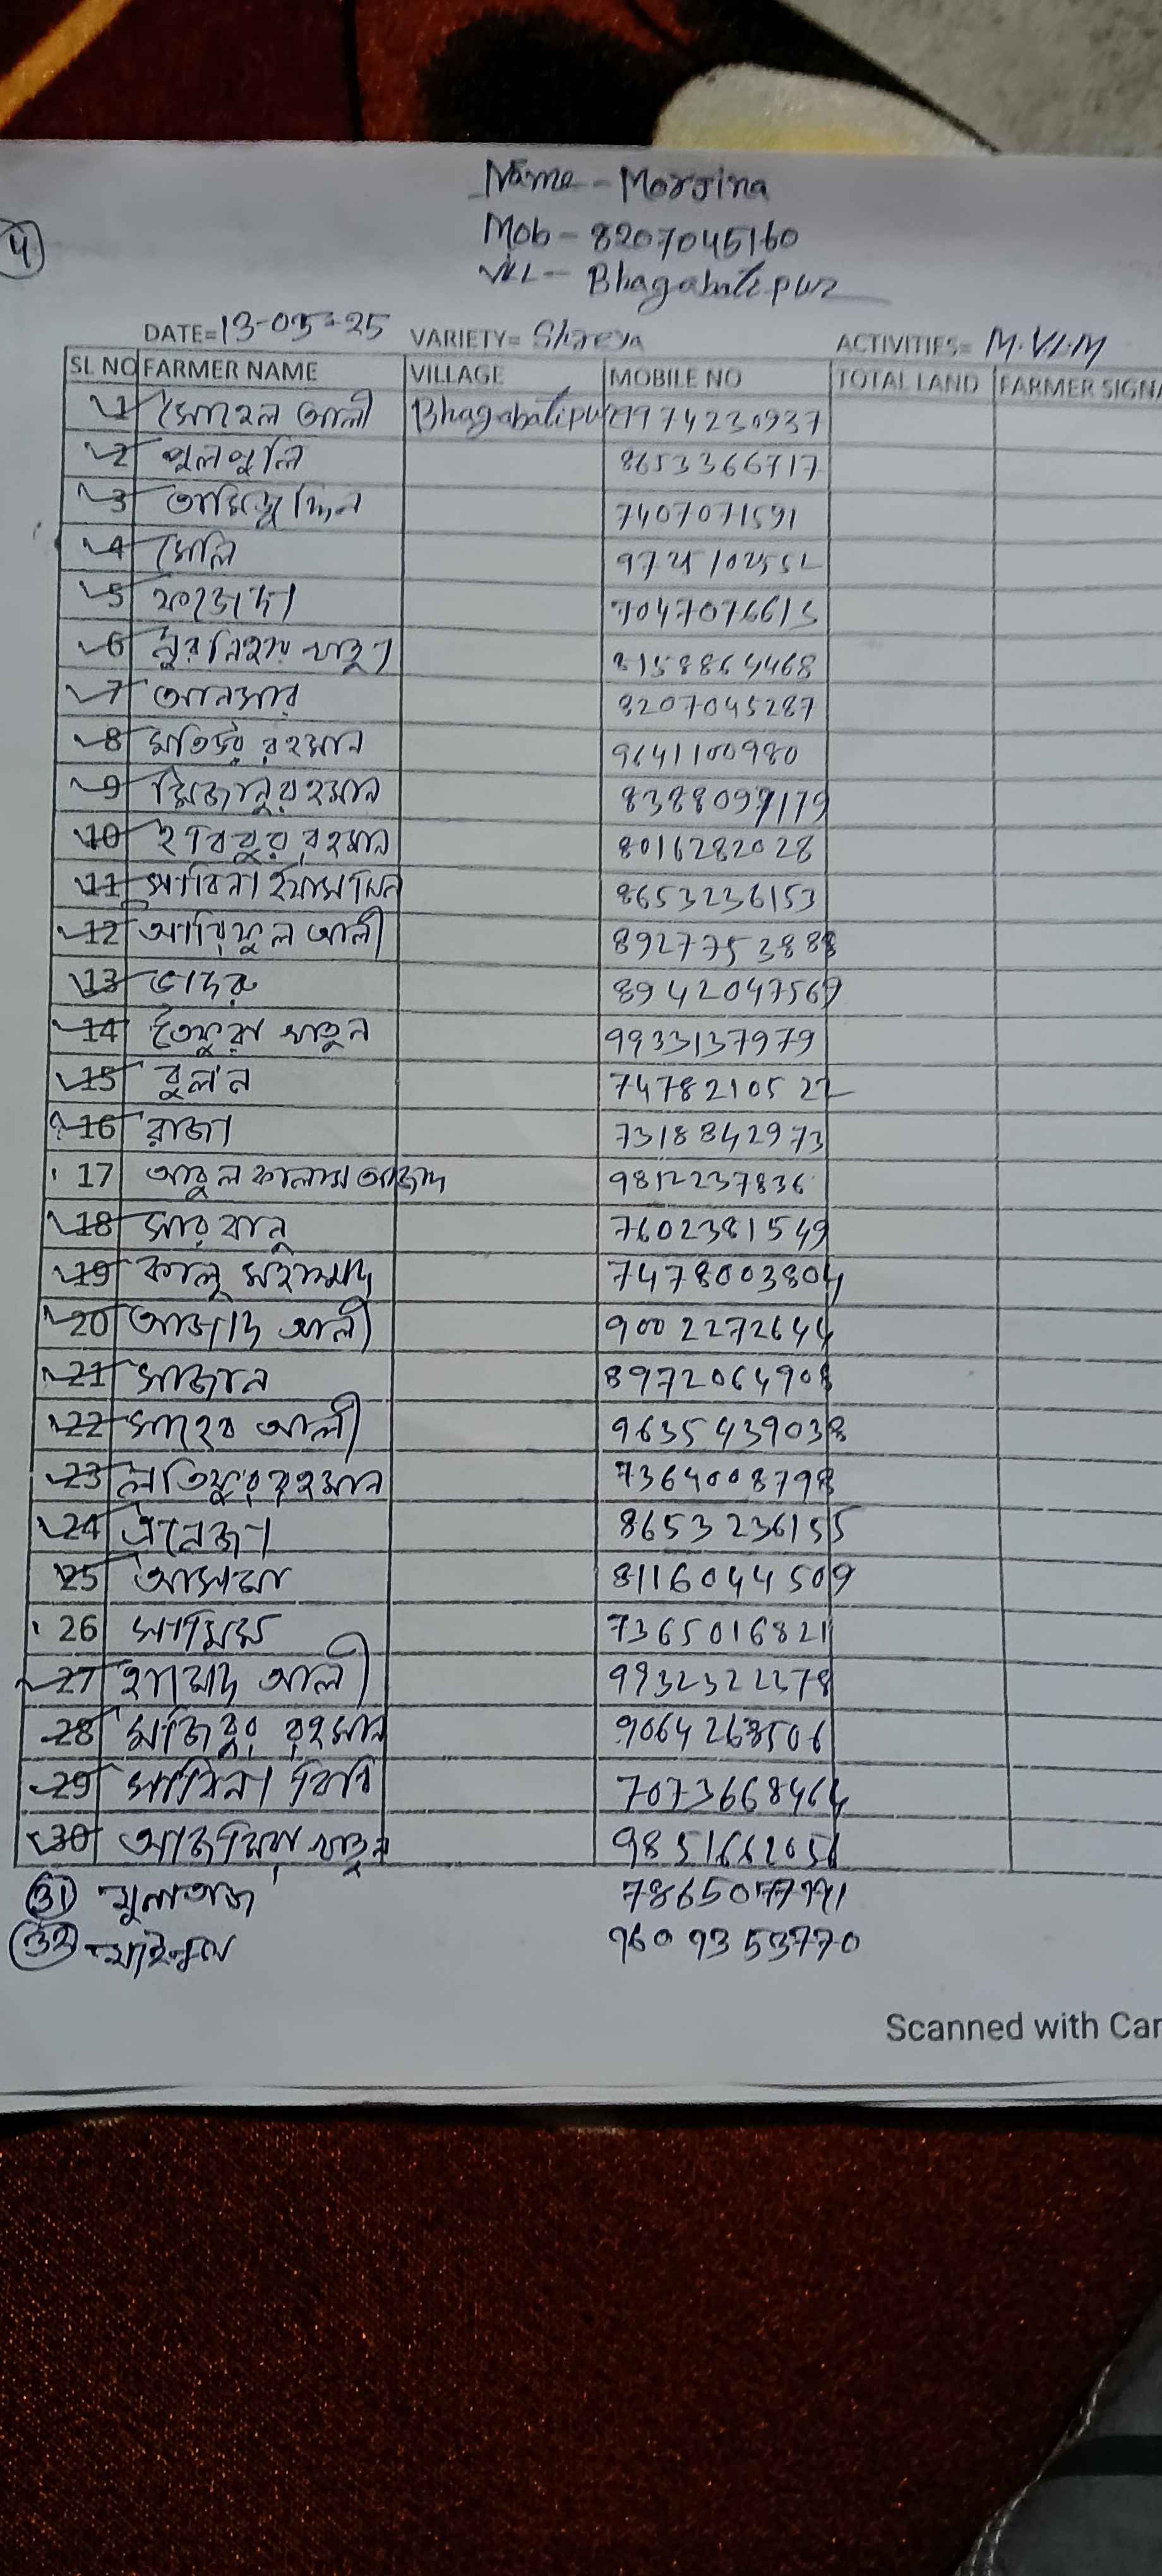 4
Name - Morjina
Mob - 8207045160
Vill - Bhagabatipur
DATE=13-05-25 VARIETY= Shreya ACTIVITIES= M.V.I.M
SL NO FARMER NAME VILLAGE MOBILE NO TOTAL LAND FARMER SIGNA
1 সোহেল আলী Bhagabatipur 9974230937
2 ধুলপুলি 8653366717
3 7407071591
4 সেলি
5 7047076613
6 নুরনিহার খাতুন 8158864468
7 আনসার 8207045287
8 মতিউর রহমান 9641100980
9 মিজানুর রহমান 8388097179
10 হবিবুর রহমান 8016282028
11 সাবিনা ইয়াসমিন 8653236153
12 আরিফুল আলী 8927753888
13 ভাদরু 8942047569
14 খাতুন 9933137979
15 বুলন 7478210522
16 রাজা 7318842973
17 আবুল কালাম আজাদ 9812237836
18 সারবানু 7602381549
19 কালু মহাম্মদ 7478003804
20 আজাদ আলী 9002272644
21 সাজান 8972064908
22 সাহেব আলী 9635439038
23 লতিফুর রহমান 7364008798
24 8653236155
25 8116044509
26 সামিম 7365016821
27 হামেদ আলী 9932322378
28 মজিবুর রহমান 9064268506
29 সাবিনা বিবি 7073668464
30 আজমিরা খাতুন 9851662056
31
32 9609353770
Scanned with Cam